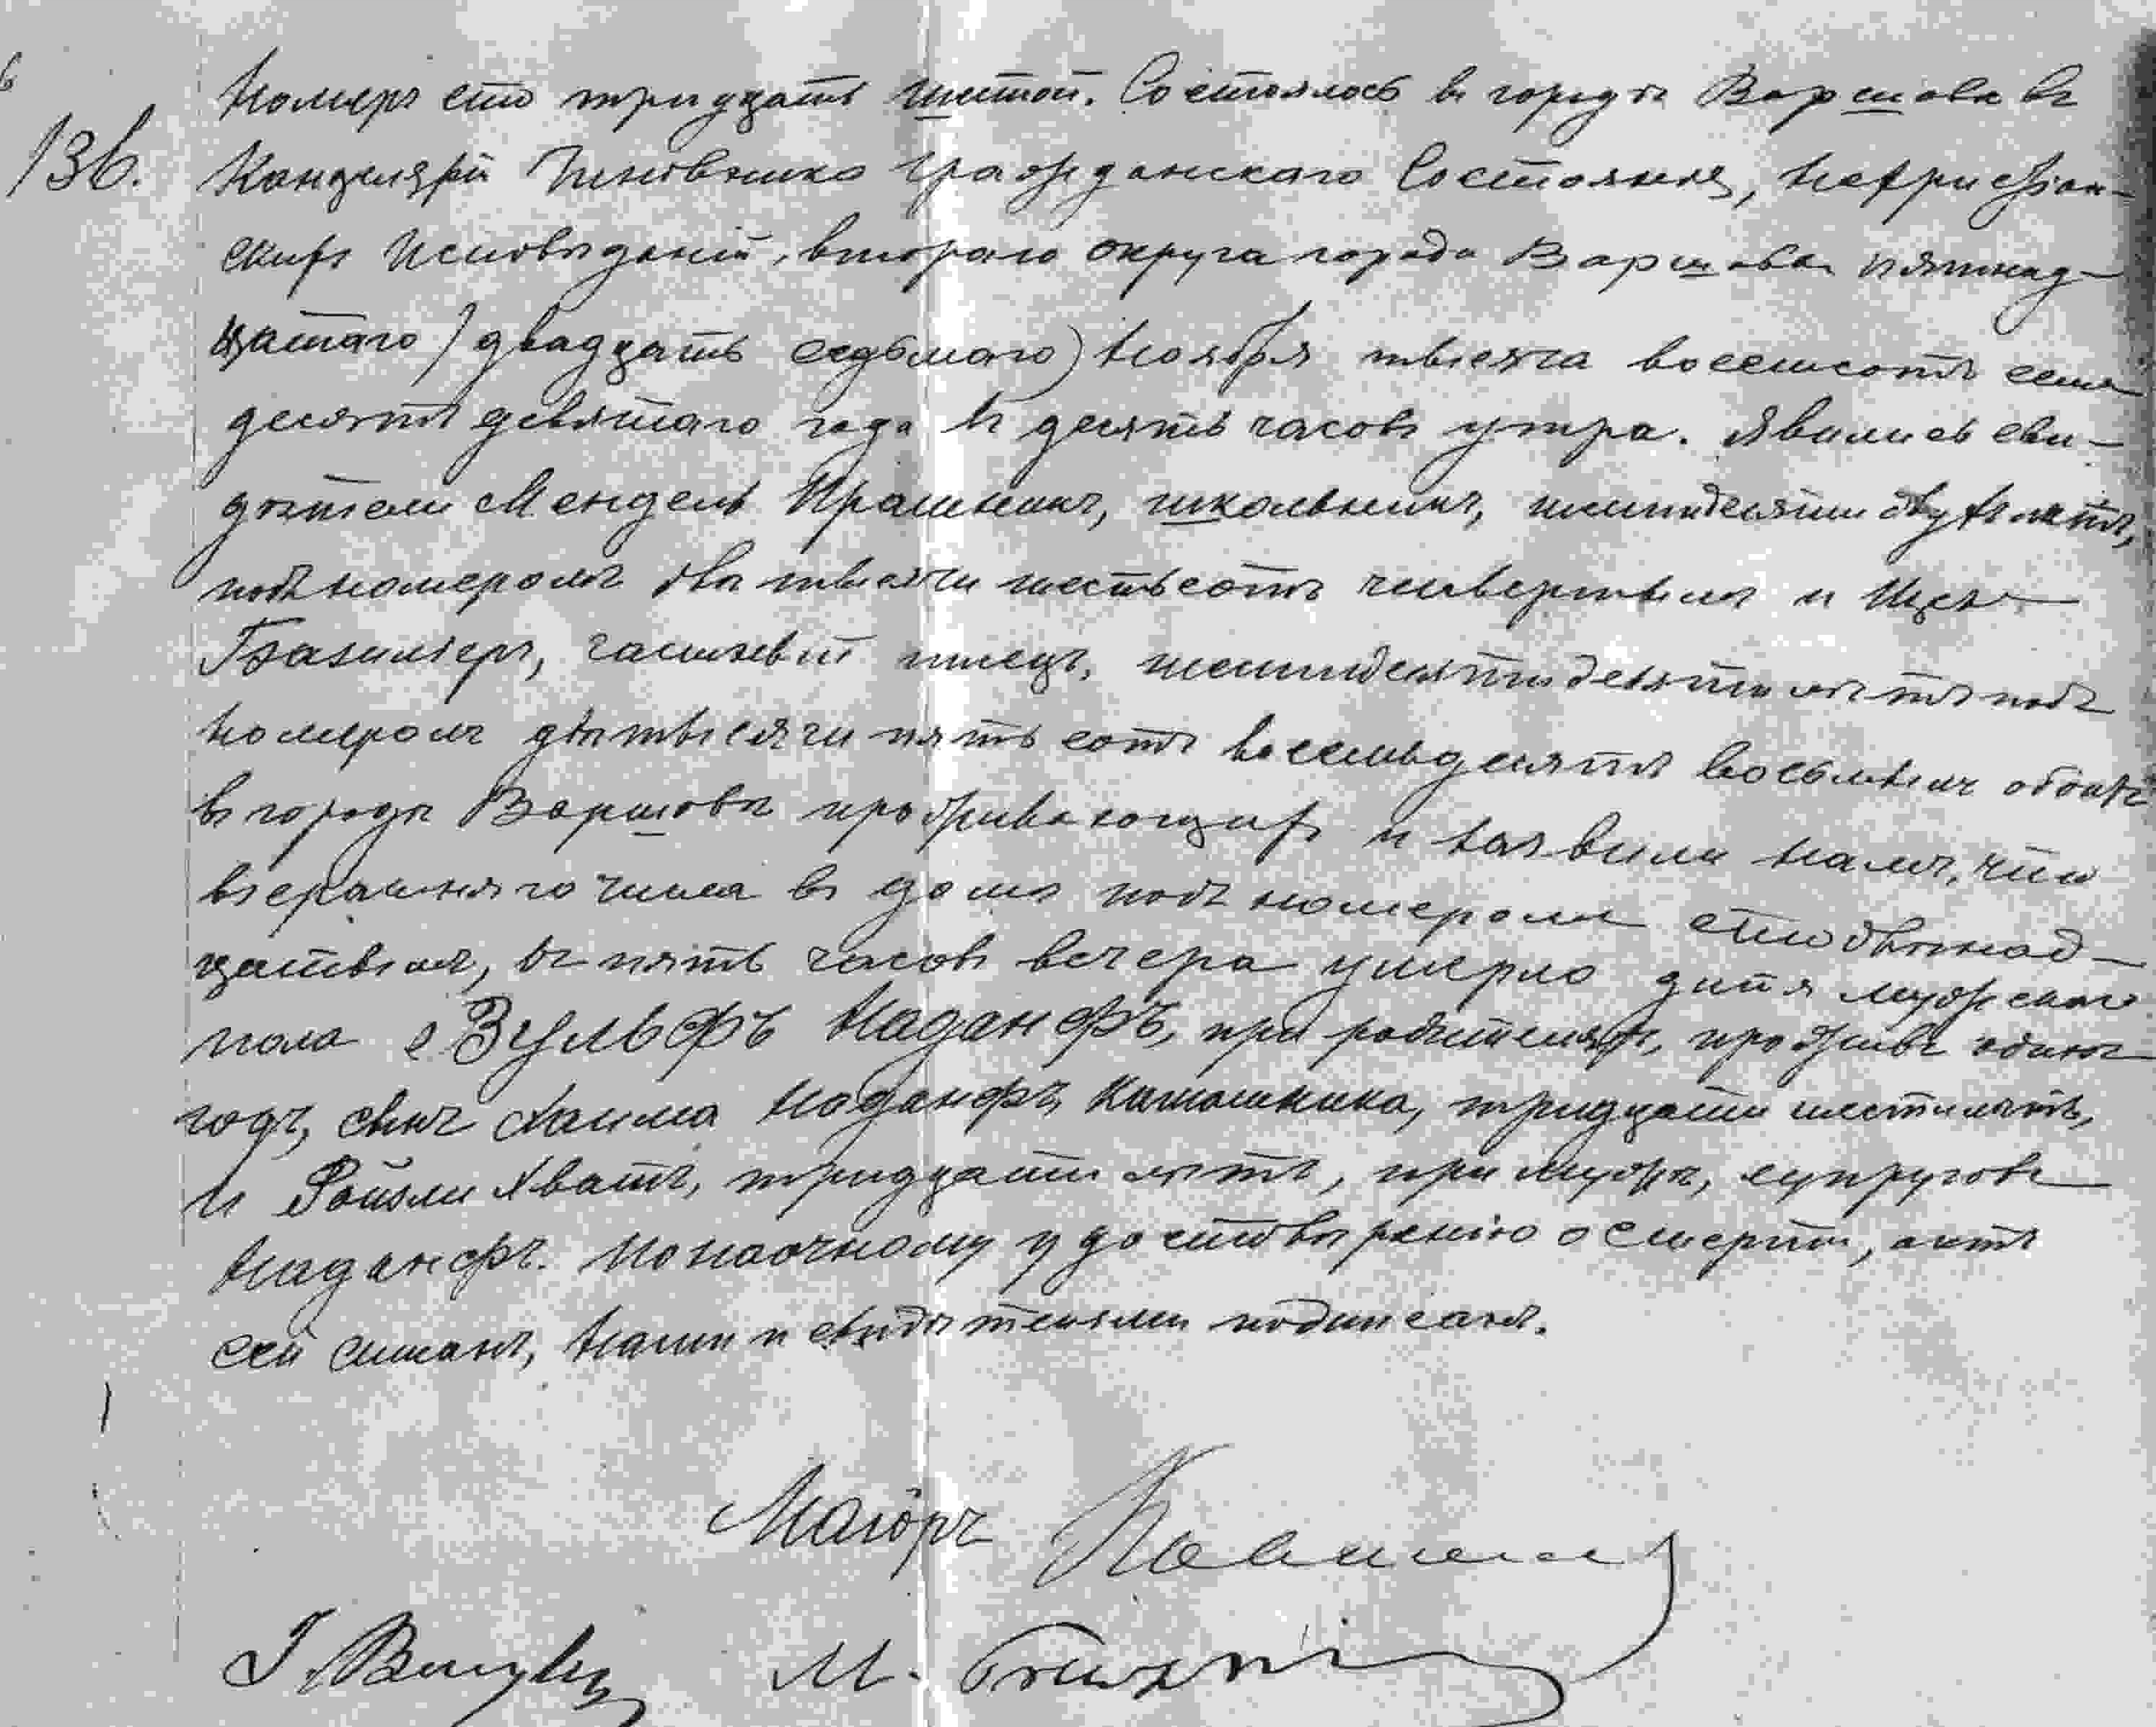 136.
Номеръ сто тридцать шестой. Состоялось въ городѣ Варшавѣ въ
Канцеляріи Чиновника Гражданскаго Состоянія, Нехристіан-
скихъ Исповѣданій, втораго округа города Варшавы пятнад-
цатаго / двадцать седьмаго) Ноября тысяча восемьсотъ семь
десятъ девятаго года въ десять часовъ утра. Явились сви-
дѣтели Мендель Прашкеръ, школьникъ, шестидесяти двухъ лѣтъ,
подъ номеромъ двѣ тысячи шестьсотъ четвертымъ и Ицекъ
частный писецъ, шестидесяти девяти лѣтъ подъ
номеромъ двѣ тысячи пять сотъ восемьдесятъ восьмымъ обоихъ
въ городѣ Варшавѣ проживающихъ и заявили намъ, что
вчерашняго числа въ домѣ подъ номеромъ сто двѣнад-
цатымъ, въ пять часовъ вечера умерло дитя мужскаго
пола Зульфъ Наданфъ, при родителяхъ, проживъ одинъ
годъ, сынъ Хаима Наданфъ, Камашника, тридцати шести лѣтъ,
и Фойгли Хватъ, тридцати лѣтъ, при мужѣ, супруговъ
Наданфъ. По наочному удостовѣренію о смерти, актъ
сей списанъ, Нами и свидѣтелями подписанъ.
Маіоръ
М.